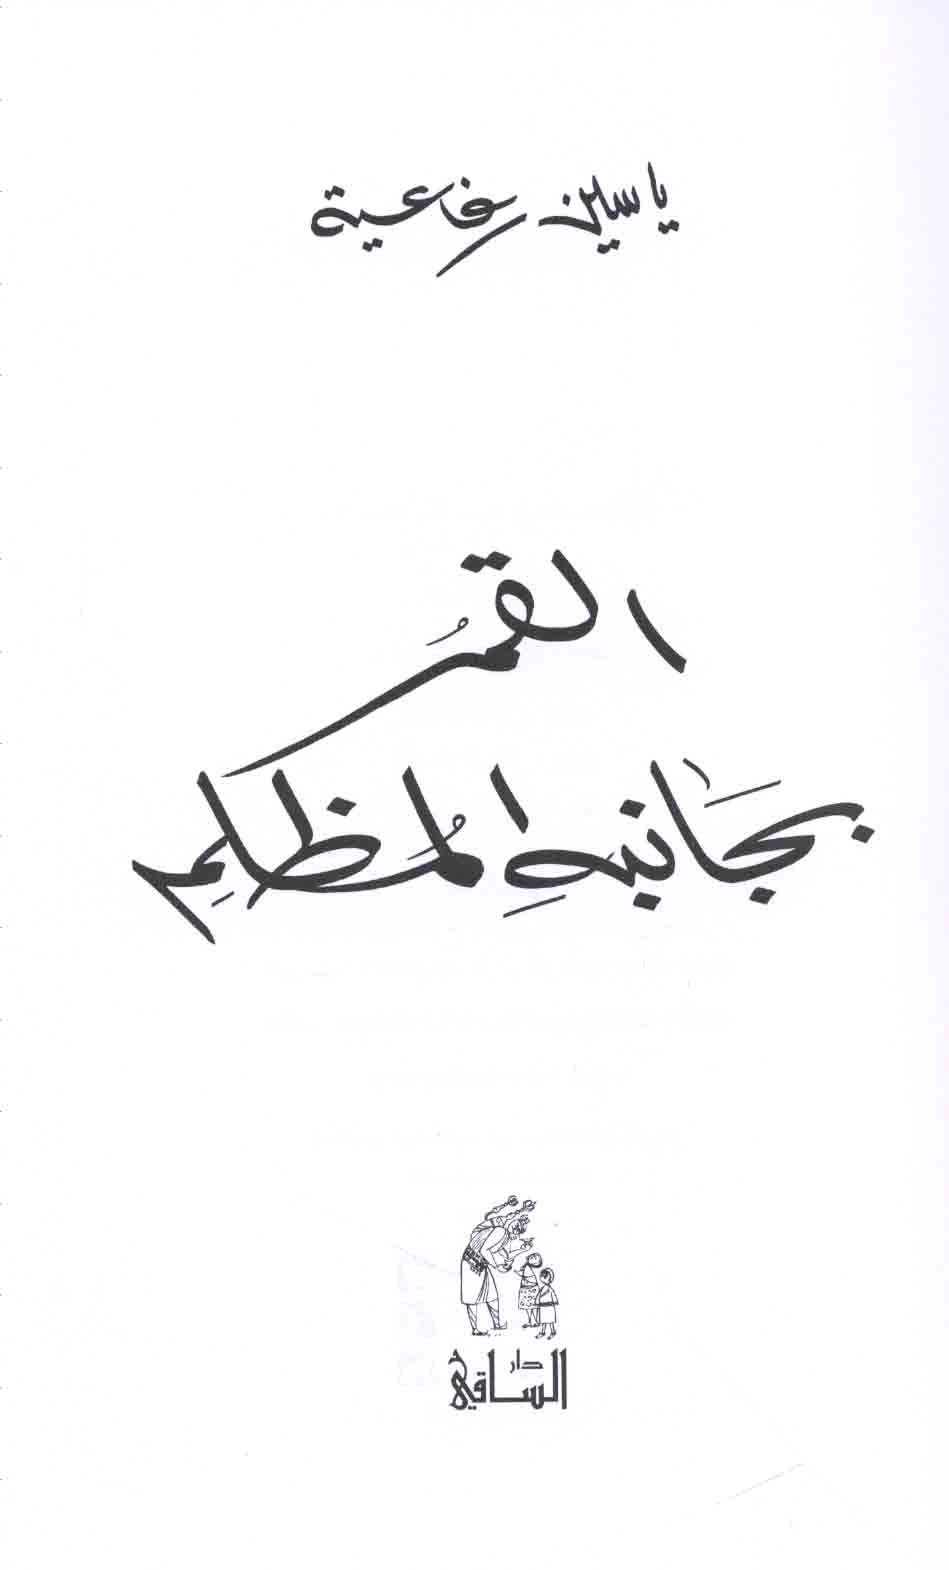 ياسين رفاعية
القمرُ
بجَانبهِ المُظلِم
دار
الساقي